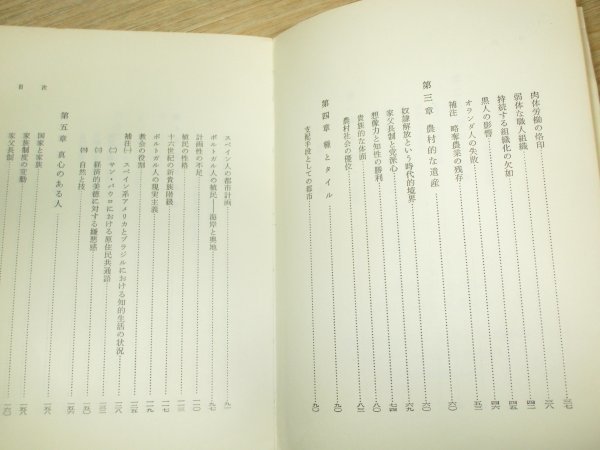 肉体労働の烙印……三七
弱体な職人組織……三八
持続する組織化の欠如……四二
黒人の影響……四五
オランダ人の失敗……四六
補注 略奪農業の残存……五三
第三章 農村的な遺産……六〇
奴隷解放という時代的境界……六〇
家父長制と党派心……六九
想像力と知性の勝利……七四
貴族的な体面……八〇
農村社会の優位……八三
第四章 種とタイル……九〇
支配手段としての都市……九〇
スペイン人の都市計画……九一
ポルトガル人の植民——海岸と奥地……九七
計画性の不足……一一〇
植民の性格……一一三
十六世紀の新貴族階級……一一七
ポルトガル人の現実主義……一一九
教会の役割……一二五
補注㈠ スペイン系アメリカとブラジルにおける知的生活の状況……一二八
㈡ サン・パウロにおける原住民共通語……一三三
㈢ 経済的美徳に対する嫌悪感……一四四
㈣ 自然と技……一五〇
第五章 真心のある人……一五六
国家と家族……一五六
家族制度の変動……一五八
家父長制……一六〇
目次